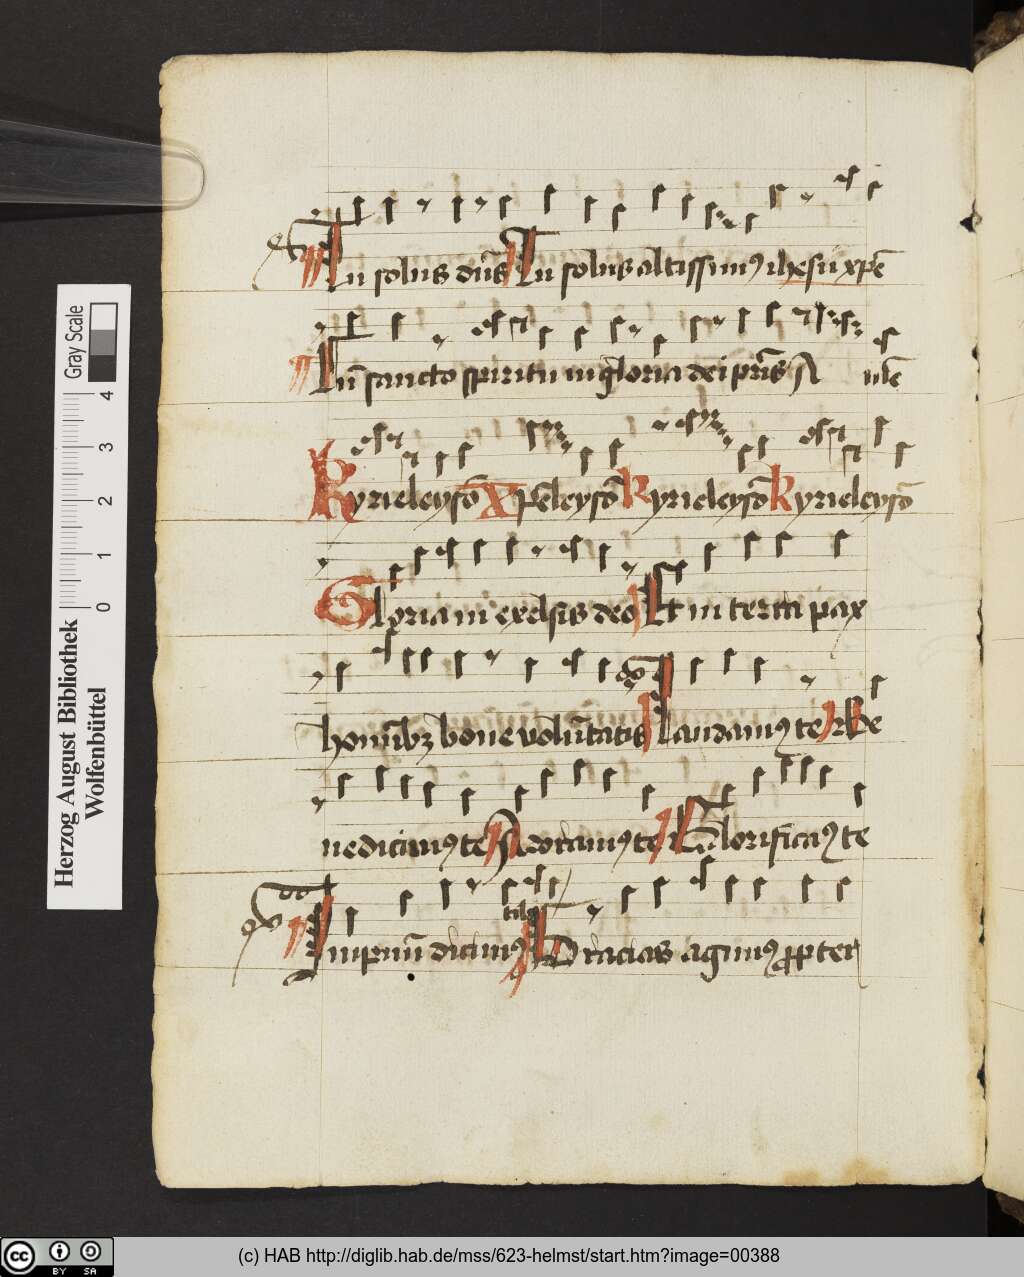 Tu solus dn̄s Tu solus altissimꝰ ihesu xp̄e
Cū sancto spiritu in gl̄oria dei pr̄is A mē
Kyrieleysō Xp̄eleysō Kyrieleysō Kyrieleysō
Gloria in excelsis deo Et in terra pax
hominibꝫ bone volūtatis Laudamꝰ te Be
nedicimꝰ te Adoramꝰ te Glorificamꝰ te
tibi
Gracias agimꝰ propter
Herzog August Bibliothek
Wolfenbüttel
Gray Scale
0 1 2 3 4
cc BY SA
(c) HAB http://diglib.hab.de/mss/623-helmst/start.htm?image=00388